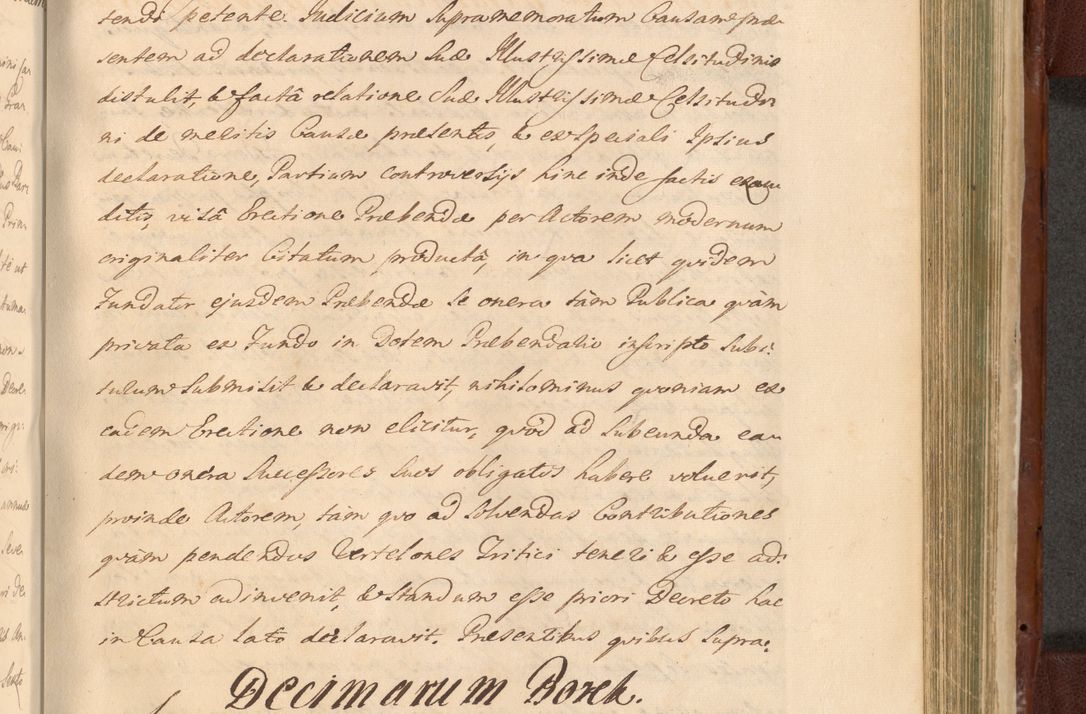 tendi petente. Judicium supramemoratum Causam præ
sentem ad declarationem Suæ Illustrissimæ Celsitudinis
distulit, & factâ relatione Suæ Illustrissimæ Celsitudi
ni de meritis Causæ præsentis, & ex speciali Ipsius
declaratione, Partium controversijs hinc inde factis exau
ditis, visâ Erectione Præbendæ per Actorem modernum
originaliter Citatum productâ, in qva licet qvidem
Fundator ejusdem Præbendæ se onera tàm Publica qvàm
privata ex Fundo in Dotem Præbendatio inscripto subi:
turum submisit & declaravit, nihilominus qvoniam ex
eadem Erectione non elicitur, qvod ad subeunda ea
dem onera Successores suos obligatos habere voluerit,
proinde Actorem, tàm qvo ad solvendas Contributiones
qvàm pendendos Vertelones Tritici teneri & esse ad:
strictum adinvenit, & standum esse priori Decreto hac
in Causa lato declaravit. Præsentibus qvibus supra.
Decimarum Borek.